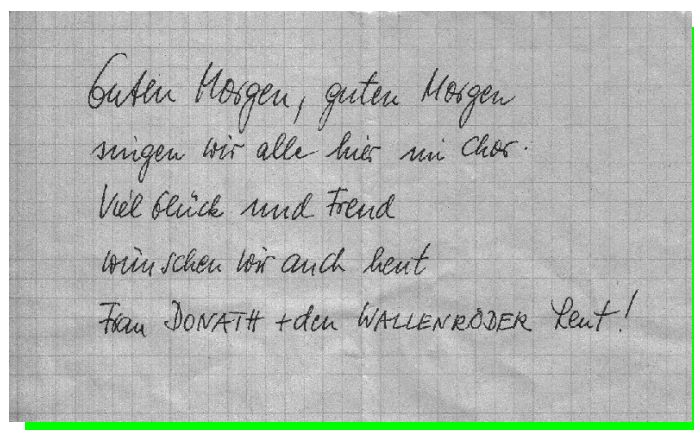 Guten Morgen, guten Morgen
singen wir alle hier im Chor.
Viel Glück und Freud
wünschen wir auch heut
Frau DONATH + den WALLENRÖDER Leut!